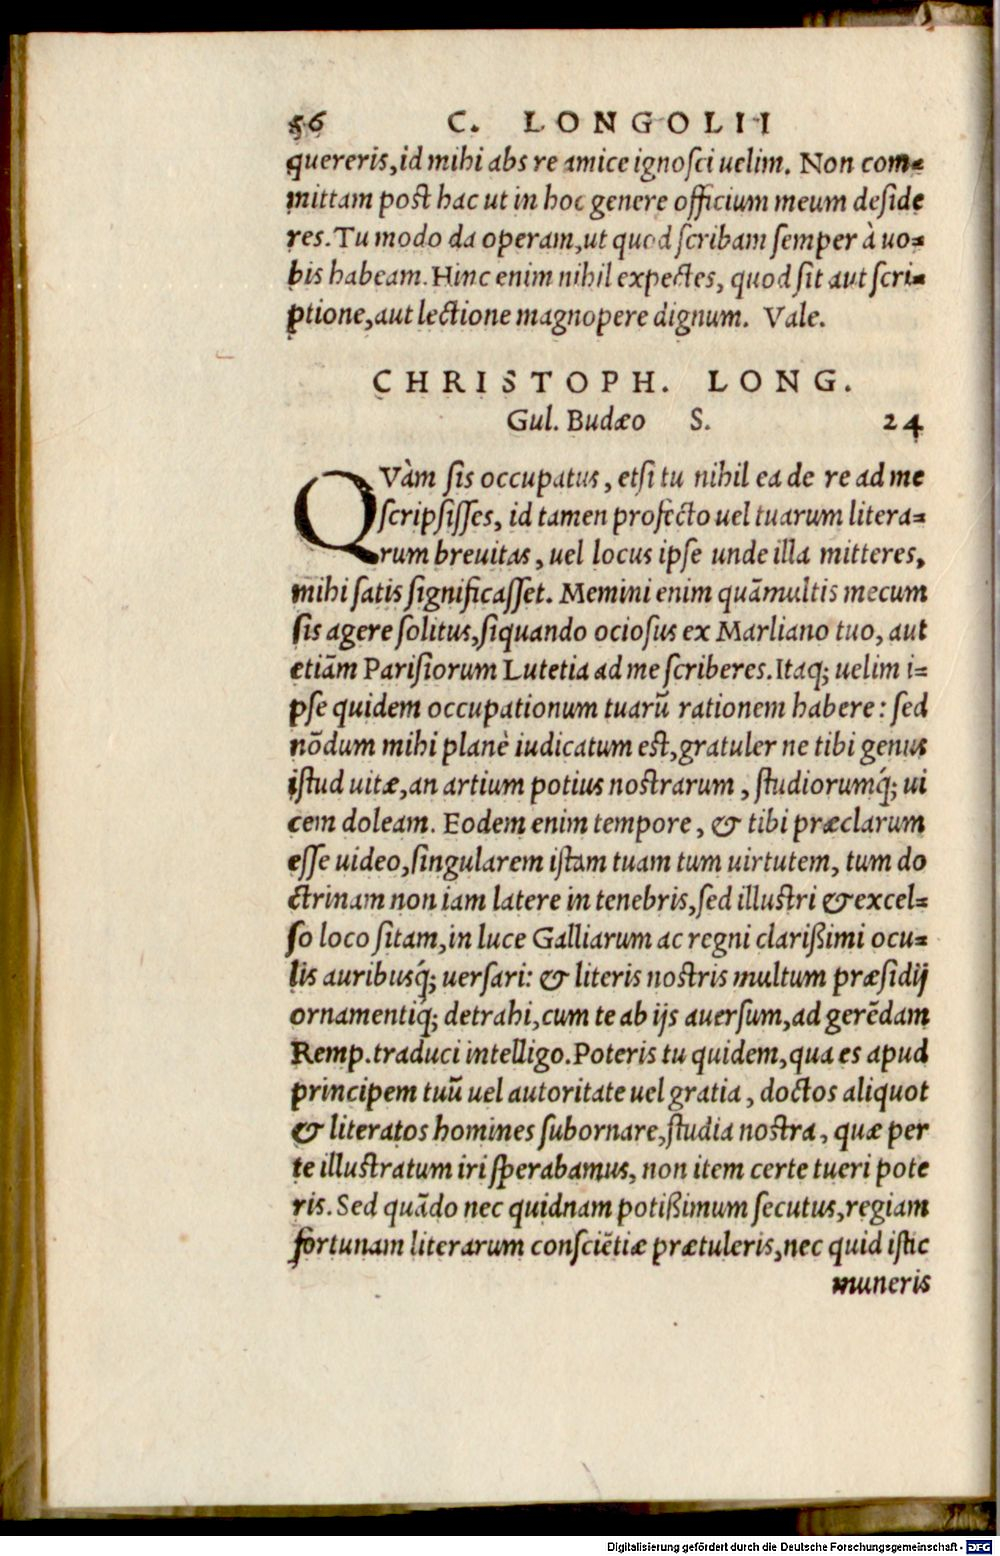 56 C. LONGOLII
quereris, id mihi abs re amice ignosci uelim. Non com=
mittam post hac ut in hoc genere officium meum deside
res. Tu modo da operam, ut quod scribam semper à uo=
bis habeam. Hinc enim nihil expectes, quod sit aut scri=
ptione, aut lectione magnopere dignum. Vale.
CHRISTOPH. LONG.
Gul. Budæo S. 24
QVàm sis occupatus, etsi tu nihil ea de re ad me
scripsisses, id tamen profecto uel tuarum litera=
rum breuitas, uel locus ipse unde illa mitteres,
mihi satis significasset. Memini enim quãmultis mecum
sis agere solitus, siquando ociosus ex Marliano tuo, aut
etiãm Parisiorum Lutetia ad me scriberes. Itaq; uelim i=
pse quidem occupationum tuarũ rationem habere: sed
nõdum mihi planè iudicatum est, gratuler ne tibi genus
istud uitæ, an artium potius nostrarum, studiorumq́; ui
cem doleam. Eodem enim tempore, & tibi præclarum
esse uideo, singularem istam tuam tum uirtutem, tum do
ctrinam non iam latere in tenebris, sed illustri & excel=
so loco sitam, in luce Galliarum ac regni clarißimi ocu=
lis auribusq́; uersari: & literis nostris multum præsidij
ornamentiq́; detrahi, cum te ab ijs auersum, ad gerẽdam
Remp. traduci intelligo. Poteris tu quidem, qua es apud
principem tuũ uel autoritate uel gratia, doctos aliquot
& literatos homines subornare, studia nostra, quæ per
te illustratum iri sperabamus, non item certe tueri pote
ris. Sed quãdo nec quidnam potißimum secutus, regiam
fortunam literarum consciẽtiæ prætuleris, nec quid istic
muneris
Digitalisierung gefördert durch die Deutsche Forschungsgemeinschaft - DFG